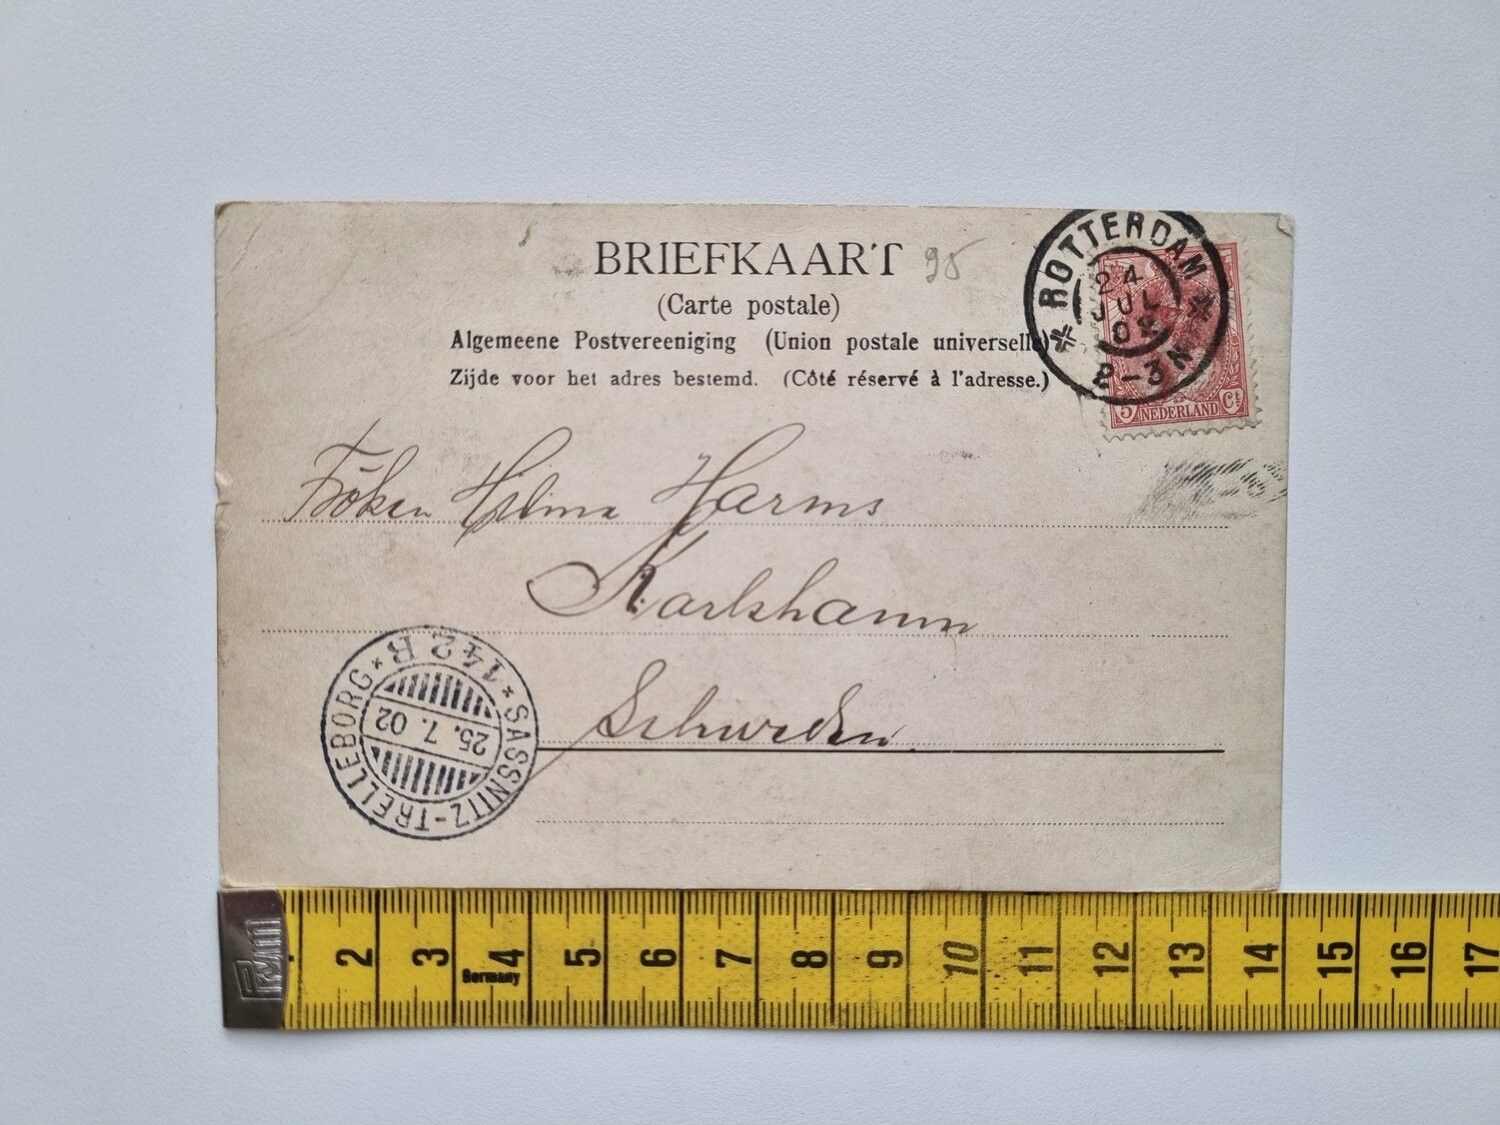 BRIEFKAART 95
(Carte postale)
Algemeene Postvereeniging (Union postale universelle)
Zijde voor het adres bestemd. (Côté réservé à l'adresse.)
ROTTERDAM
24
JUL
02
2-3N
5 NEDERLAND Ct
Fröken Hilma Harms
Karlshamn
Schweden.
* 142 B * SASSNITZ-TRELLEBORG
25. 7. 02
Prym
2 3 4 5 6 7 8 9 10 11 12 13 14 15 16 17
Germany